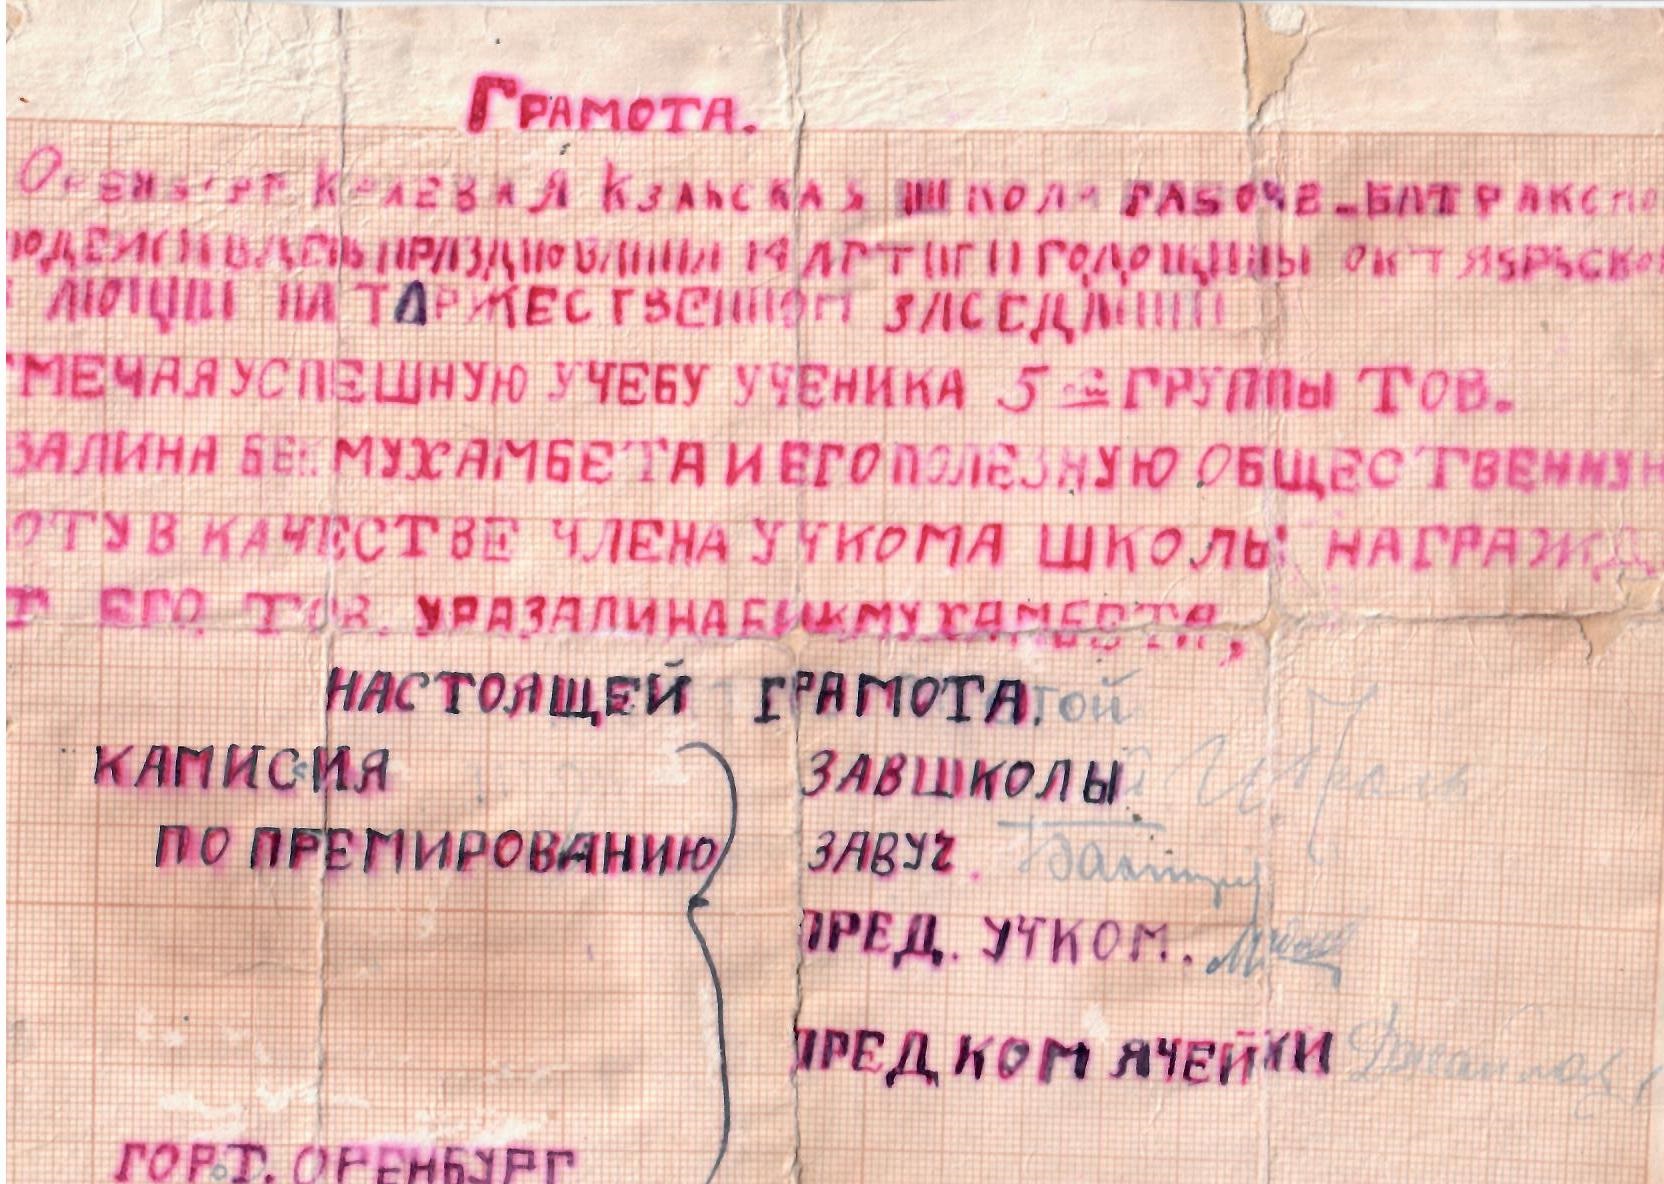 ГРАМОТА.
ШКОЛА РАБОЧЕ-БАТРАКС
ПРАЗДНОВАНИЯ 14 ГОДОЩИНЫ ОКТЯБРЬСКО
ЛЮЦИИ НА ТАРЖЕСТВЕННОМ ЗАСЕДАНИИ
МЕЧАЯ УСПЕШНУЮ УЧЕБУ УЧЕНИКА 5-ой ГРУППЫ ТОВ.
ЗАЛИНА БЕКМУХАМБЕТА И ЕГО ПОЛЕЗНУЮ ОБЩЕСТВЕННУЮ
ОТУ В КАЧЕСТВЕ ЧЛЕНА УЧКОМА ШКОЛЫ НАГРАЖД
Т ЕГО ТОВ. УРАЗАЛИНА БИКМУХАМБЕТА,
НАСТОЯЩЕЙ ГРАМОТА.
КАМИСИЯ ЗАВШКОЛЫ
ПО ПРЕМИРОВАНИЮ ЗАВУЧ.
ПРЕД. УЧКОМ.
ПРЕД КОМ ЯЧЕЙКИ
ГОРТ. ОРЕНБУРГ